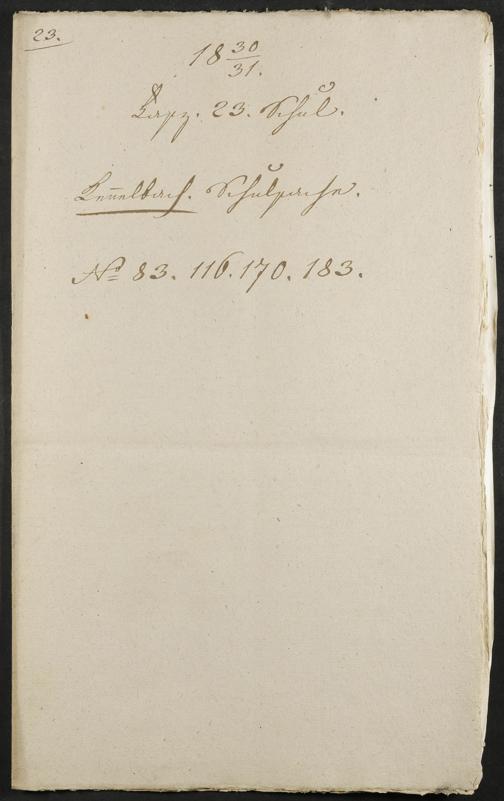 23.
18 30/31.
Fasz. 23. Schul.
Kennelbach. Schulsache.
No 83. 116. 170. 183.